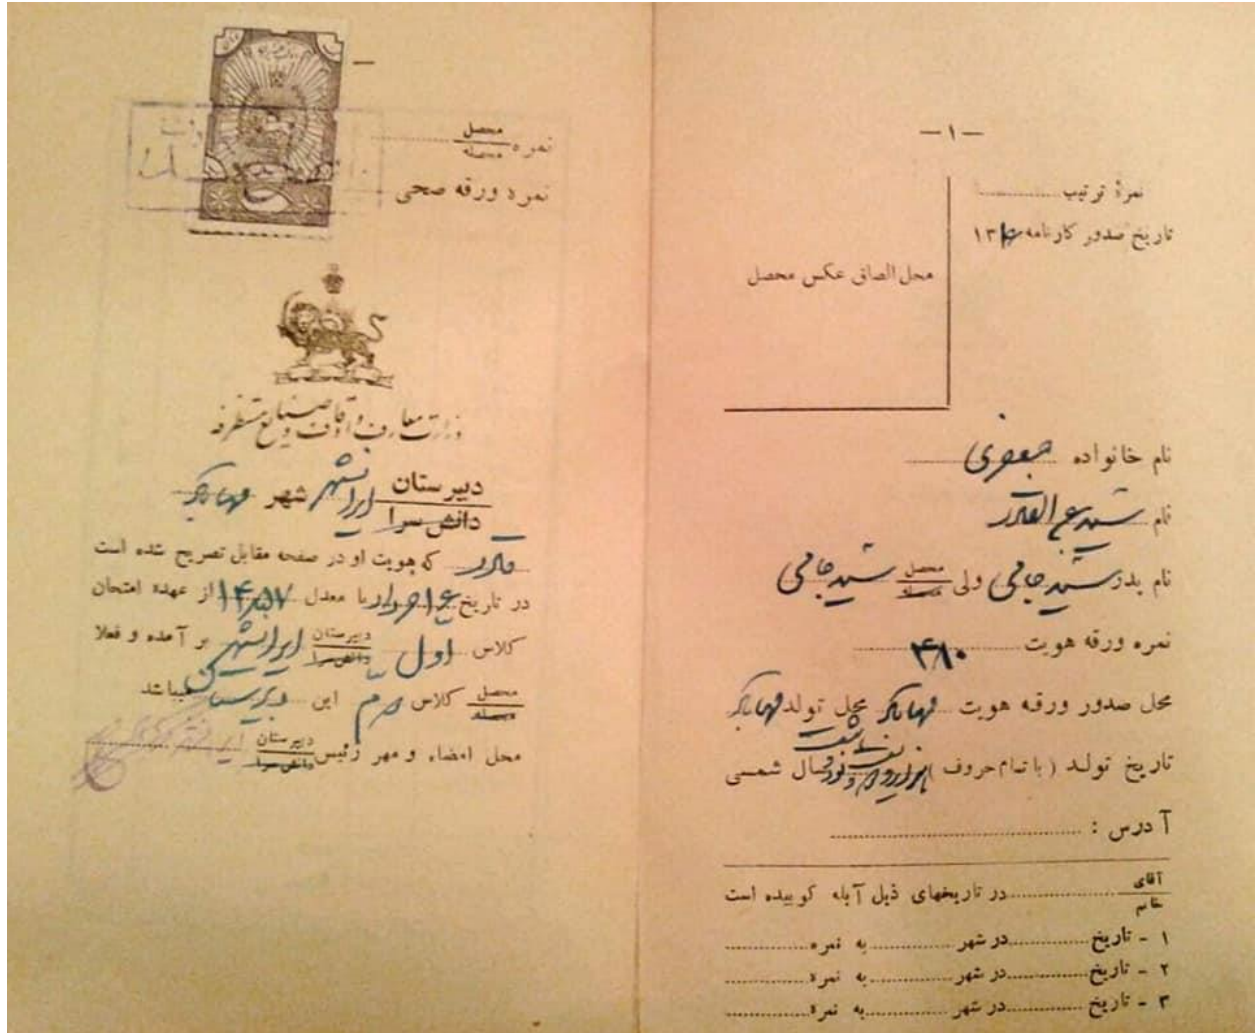 — ۱ —
نمرۀ ترتیب
تاریخ صدور کارنامه ۱۳
محل الصاق عکس محصل
نام خانواده جعفری
نام سید عبدالقادر
نام پدر سید جامی ولی محصل / محصله سید جامی
نمره ورقه هویت ۴۸۰
محل صدور ورقه هویت مهاباد محل تولد مهاباد
تاریخ تولد ( با تمام حروف ) سال شمسی
آدرس :
آقای / خانم در تاریخهای ذیل آبله کوبیده است
۱ - تاریخ در شهر به نمره
۲ - تاریخ در شهر به نمره
۳ - تاریخ در شهر به نمره
نمره محصل / محصله
نمره ورقه صحی
وزارت معارف و اوقاف و صنایع مستظرفه
دبیرستان / دانش سرا ایرانشهر شهر مهاباد
که هویت او در صفحه مقابل تصریح شده است
در تاریخ با معدل از عهده امتحان
کلاس اول دبیرستان / دانش سرا ایرانشهر بر آمده و فعلا
محصل / محصله کلاس دوم این دبیرستان میباشد
محل امضاء و مهر رئیس دبیرستان / دانش سرا